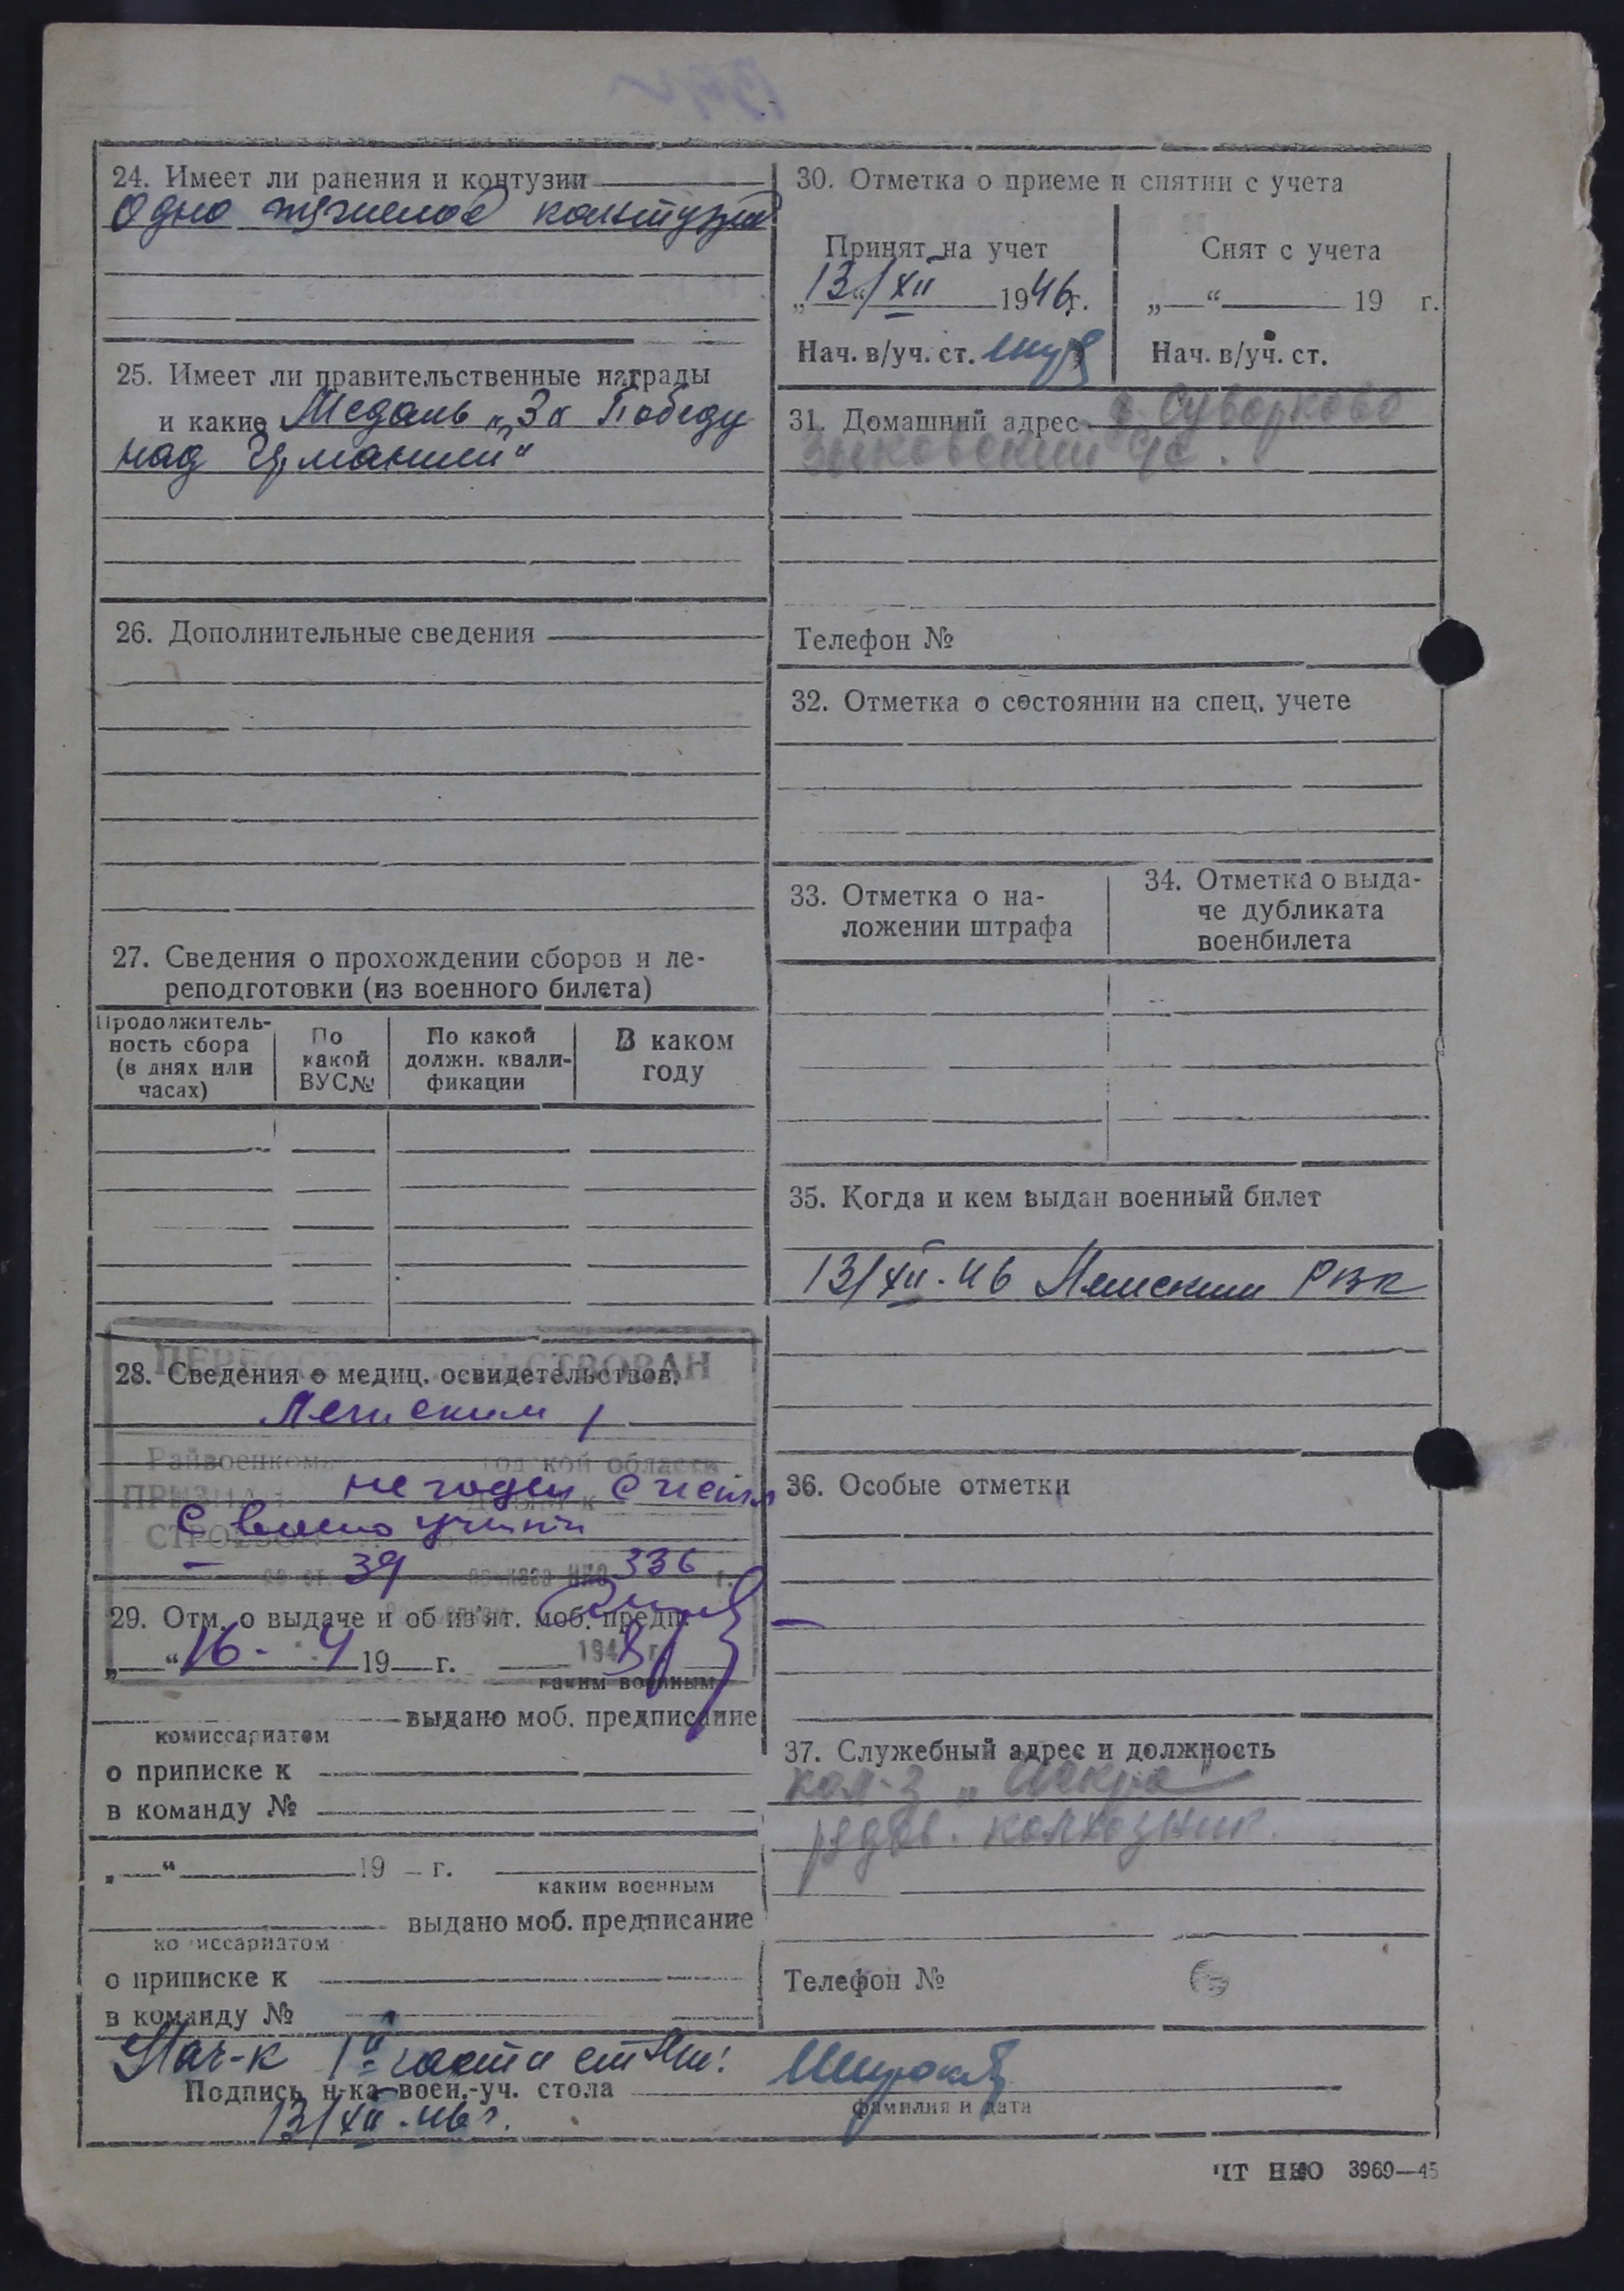 24. Имеет ли ранения и контузии
Одно тяжелое контузия
25. Имеет ли правительственные награды
и какие Медаль „За Победу
над Германией“
26. Дополнительные сведения
27. Сведения о прохождении сборов и пе-
реподготовки (из военного билета)
Продолжитель-
ность сбора
(в днях или
часах)
По
какой
ВУС№
По какой
должн. квали-
фикации
В каком
году
ПЕРЕОСВИДЕТЕЛЬСТВОВАН
28. Сведения о медиц. освидетельствов.
Райвоенкома кой области
ПРИЗНАН не годен
с учета
39 336 г.
29. Отм. о выдаче и об из'ят. моб. предп.
„ “ 16 - 4 19 г. 194 г.
каким военным
выдано моб. предписание
комиссариатом
о приписке к
в команду №
„ “ 19 г.
каким военным
выдано моб. предписание
комиссариатом
о приписке к
в команду №
30. Отметка о приеме и снятии с учета
Принят на учет
„13“/XII 1946г.
Нач. в/уч. ст.
Снят с учета
„ “ 19 г.
Нач. в/уч. ст.
31. Домашний адрес д. Суворково
Зыковский с/с.
Телефон №
32. Отметка о состоянии на спец. учете
33. Отметка о на-
ложении штрафа
34. Отметка о выда-
че дубликата
военбилета
35. Когда и кем выдан военный билет
13/XII-46 РВК
36. Особые отметки
37. Служебный адрес и должность
кол-з „Искра“
рядов. колхозник.
Телефон №
Нач-к 1й части
Подпись н-ка воен.-уч. стола
фамилия и дата
13/XII-46г.
ЧТ НКО 3969—45